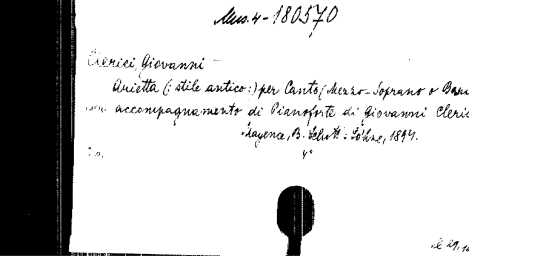 Mus. 4-180570
Clerici, Giovanni
Arietta (: stile antico :) per Canto (Mezzo-Soprano o
accompagnamento di Pianoforte di Giovanni Cleric
Mayence, B. Schott's Söhne, 1894.
4°